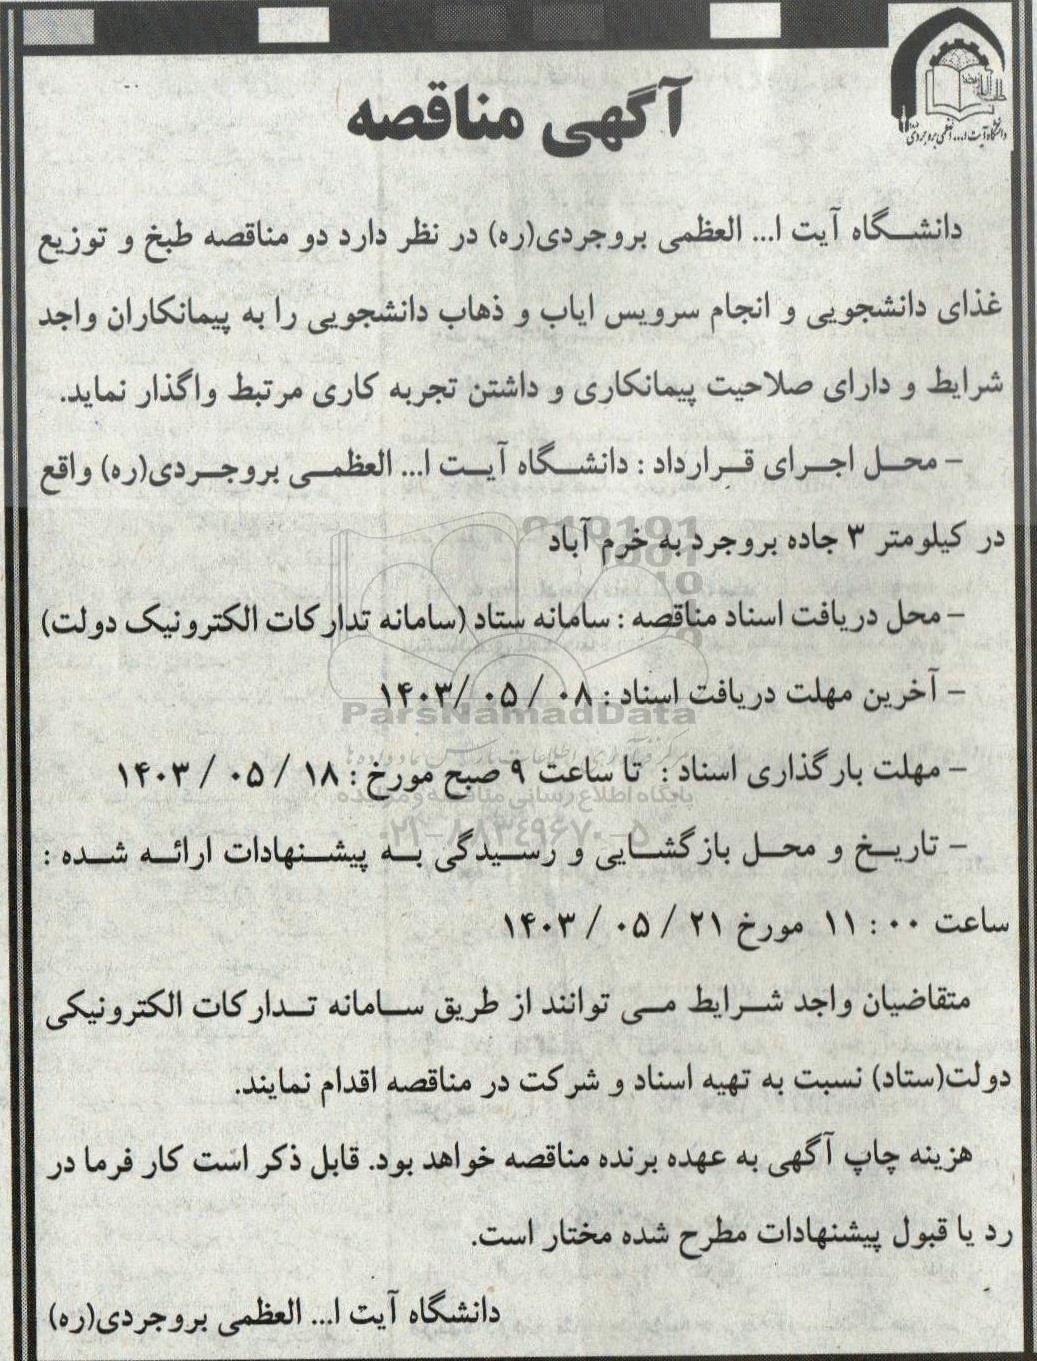 دانشگاه آیت ا... العظمی بروجردی(ره)
آگهی مناقصه
دانشگاه آیت ا... العظمی بروجردی(ره) در نظر دارد دو مناقصه طبخ و توزیع
غذای دانشجویی و انجام سرویس ایاب و ذهاب دانشجویی را به پیمانکاران واجد
شرایط و دارای صلاحیت پیمانکاری و داشتن تجربه کاری مرتبط واگذار نماید.
- محل اجرای قرارداد : دانشگاه آیت ا... العظمی بروجردی(ره) واقع
در کیلومتر ۳ جاده بروجرد به خرم آباد
- محل دریافت اسناد مناقصه : سامانه ستاد (سامانه تدارکات الکترونیک دولت)
- آخرین مهلت دریافت اسناد : ۰۸ / ۰۵ /۱۴۰۳
ParsNamadData
- مهلت بارگذاری اسناد : تا ساعت ۹ صبح مورخ : ۱۸ / ۰۵ / ۱۴۰۳
پایگاه اطلاع رسانی مناقصه و مزایده
۰۲۱-۸۸۳۴۹۶۷۰-۵
- تاریخ و محل بازگشایی و رسیدگی به پیشنهادات ارائه شده :
ساعت ۰۰ : ۱۱ مورخ ۲۱ / ۰۵ / ۱۴۰۳
متقاضیان واجد شرایط می توانند از طریق سامانه تدارکات الکترونیکی
دولت(ستاد) نسبت به تهیه اسناد و شرکت در مناقصه اقدام نمایند.
هزینه چاپ آگهی به عهده برنده مناقصه خواهد بود. قابل ذکر است کار فرما در
رد یا قبول پیشنهادات مطرح شده مختار است.
دانشگاه آیت ا... العظمی بروجردی(ره)